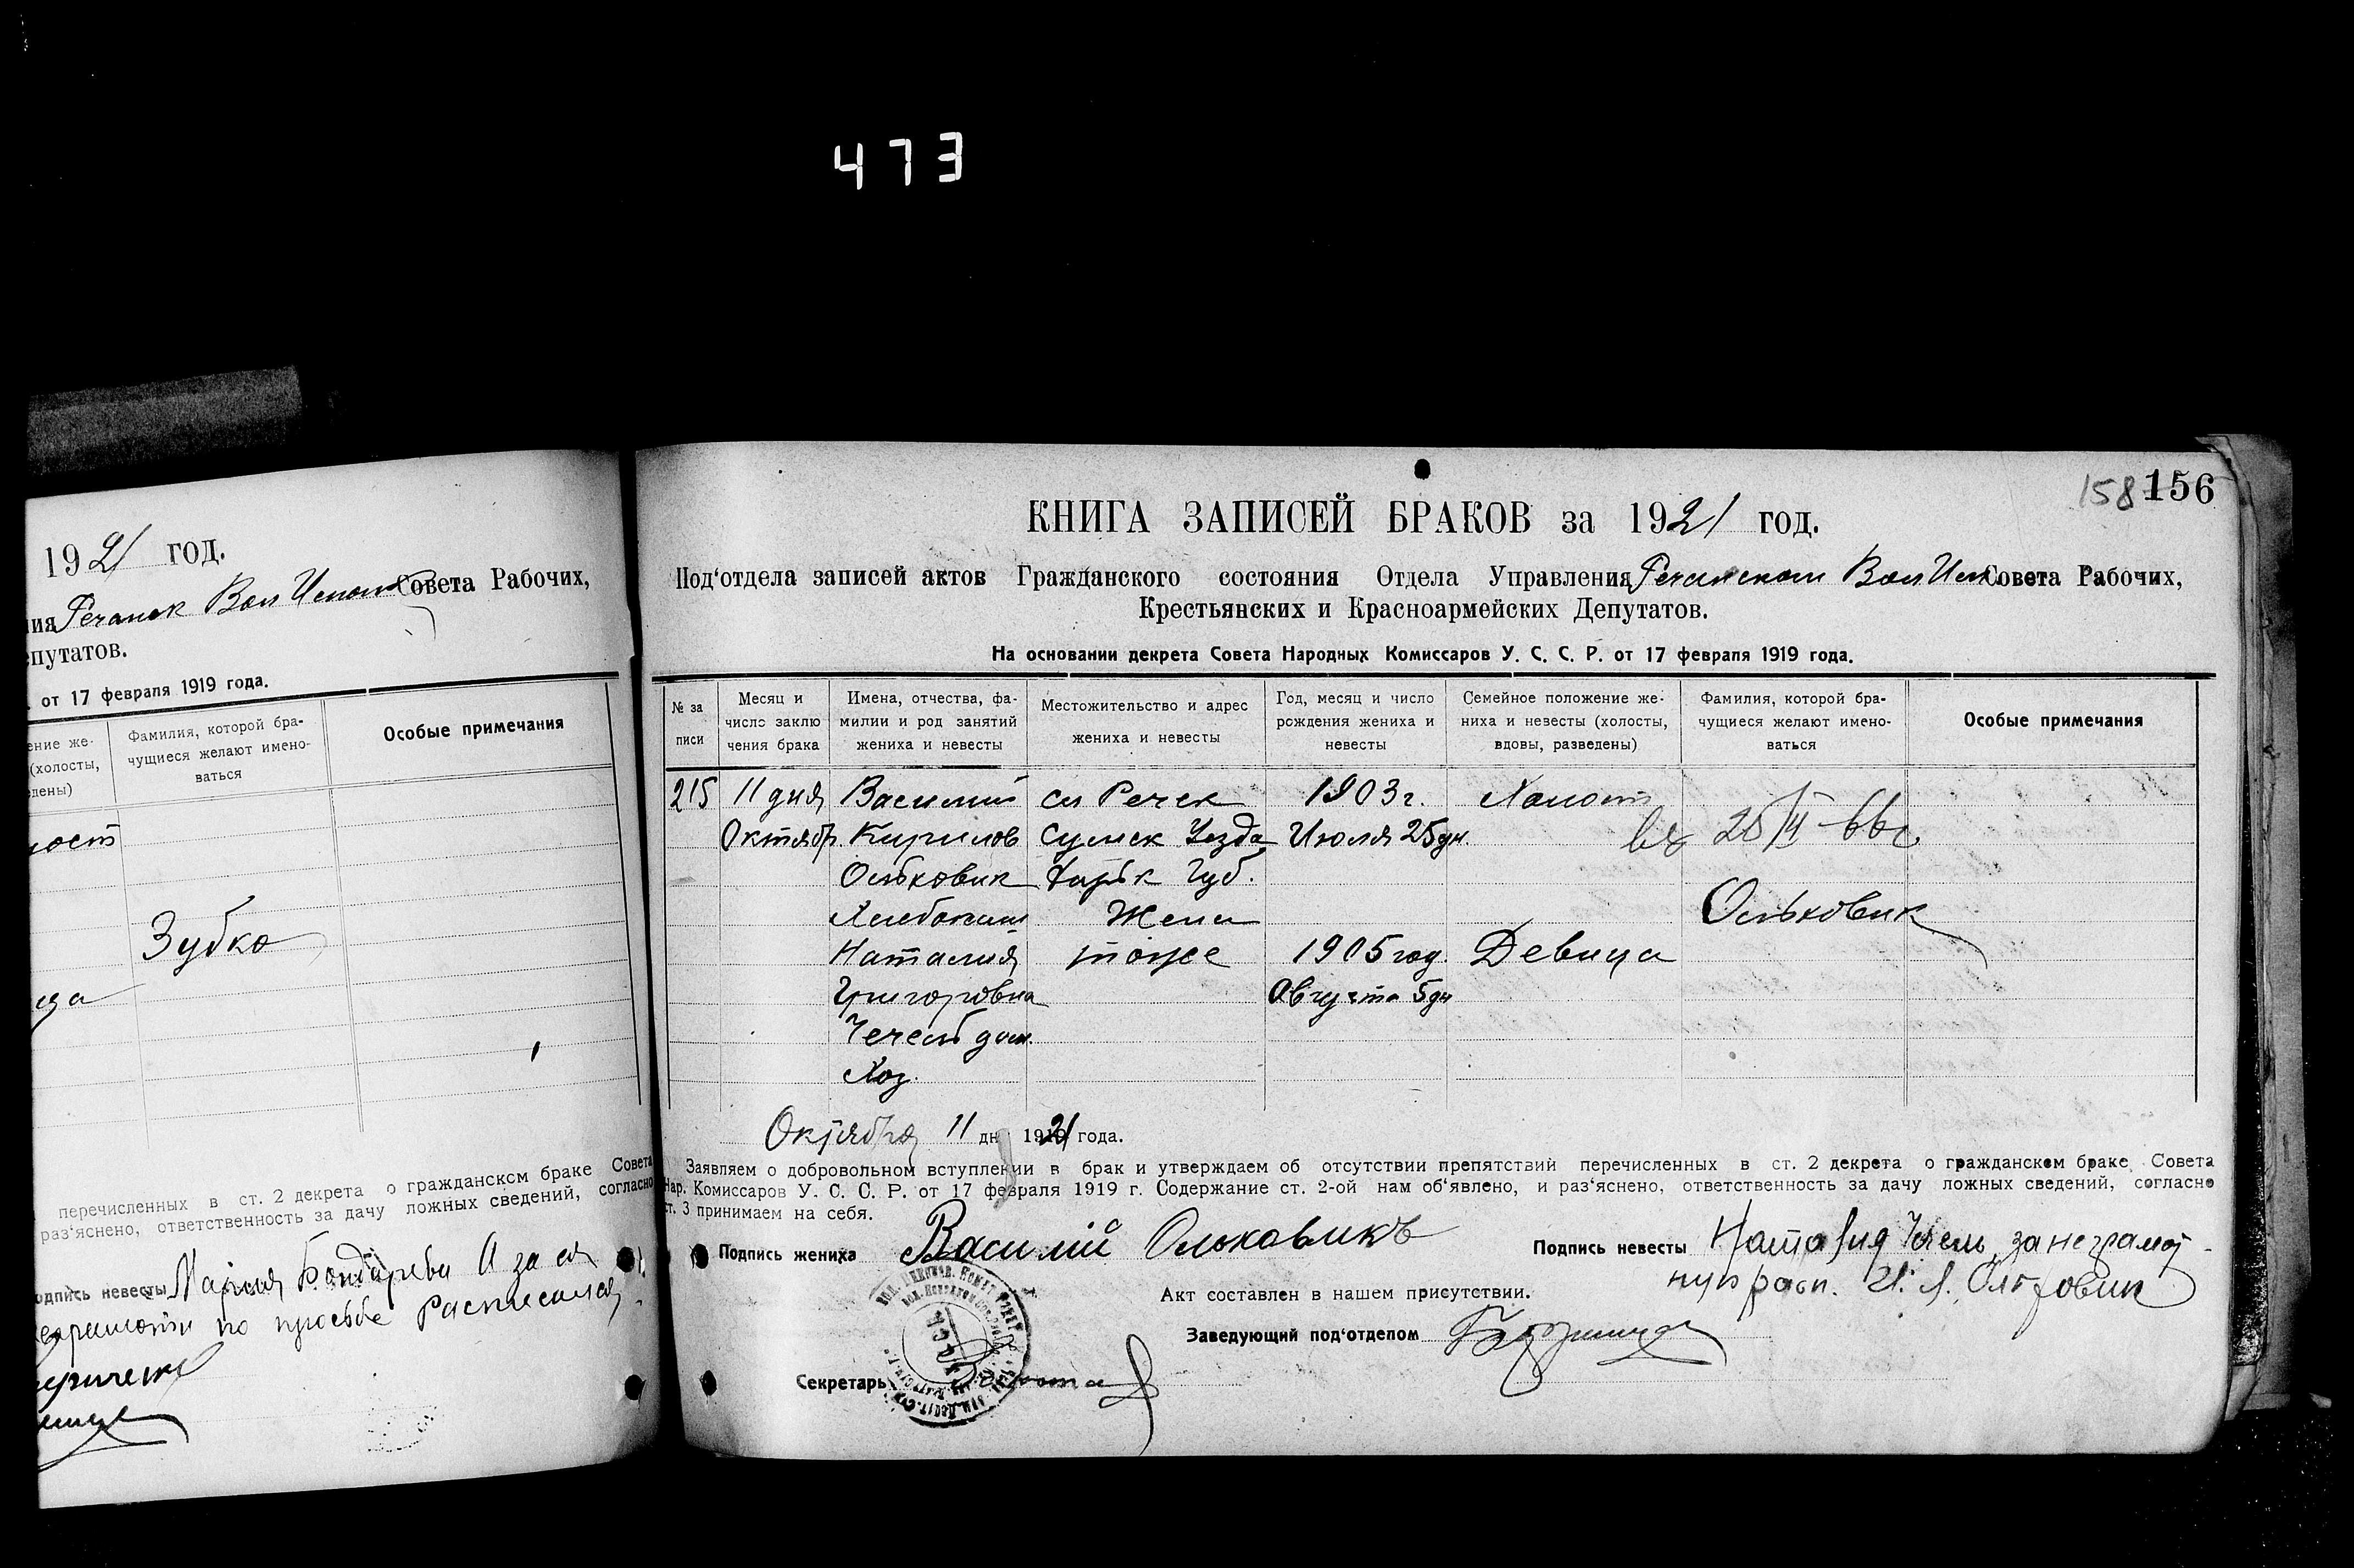 473
1921 год.
ия Речанск Вол Исполк Совета Рабочих,
епутатов.
от 17 февраля 1919 года.
ение же-
(холосты,
дены)
Фамилия, которой бра-
чущиеся желают имено-
ваться
Особые примечания
ост
Зубко
ица
перечисленных в ст. 2 декрета о гражданском браке Совета
раз‘яснено, ответственность за дачу ложных сведений, согласно
одпись невесты Мария Бондарева А за ея
по просьбе Расписался
158 156
КНИГА ЗАПИСЕЙ БРАКОВ за 1921 год.
Под‘отдела записей актов Гражданского состояния Отдела Управления Речанском Вол Исп. Совета Рабочих,
Крестьянских и Красноармейских Депутатов.
На основании декрета Совета Народных Комиссаров У. С. С. Р. от 17 февраля 1919 года.
№ за
писи
Месяц и
число заклю
чения брака
Имена, отчества, фа-
милии и род занятий
жениха и невесты
Местожительство и адрес
жениха и невесты
Год, месяц и число
рождения жениха и
невесты
Семейное положение же-
ниха и невесты (холосты,
вдовы, разведены)
Фамилия, которой бра-
чущиеся желают имено-
ваться
Особые примечания
215 11 дня Василий сл Речек 1903 г. Холост
Октябр. Кирилов Сумск Уезда Июля 25 дн.
Ольховик Харьк Губ.
Хлебопаш Жена Ольховик
Наталия тоже 1905 год. Девица
Григоровна Августа 5 дн
Чечель дом.
Хоз.
Октября 11 дн 1921 года.
Заявляем о добровольном вступлении в брак и утверждаем об отсутствии препятствий перечисленных в ст. 2 декрета о гражданском браке Совета
Нар. Комиссаров У. С. С. Р. от 17 февраля 1919 г. Содержание ст. 2-ой нам об‘явлено, и раз‘яснено, ответственность за дачу ложных сведений, согласно
ст. 3 принимаем на себя.
Подпись жениха Василій Ольховикъ
Подпись невесты Наталия Чечель, за неграмот-
ную расп. И. Я. Ольховик
Акт составлен в нашем присутствии.
Заведующий под‘отделом
Секретарь